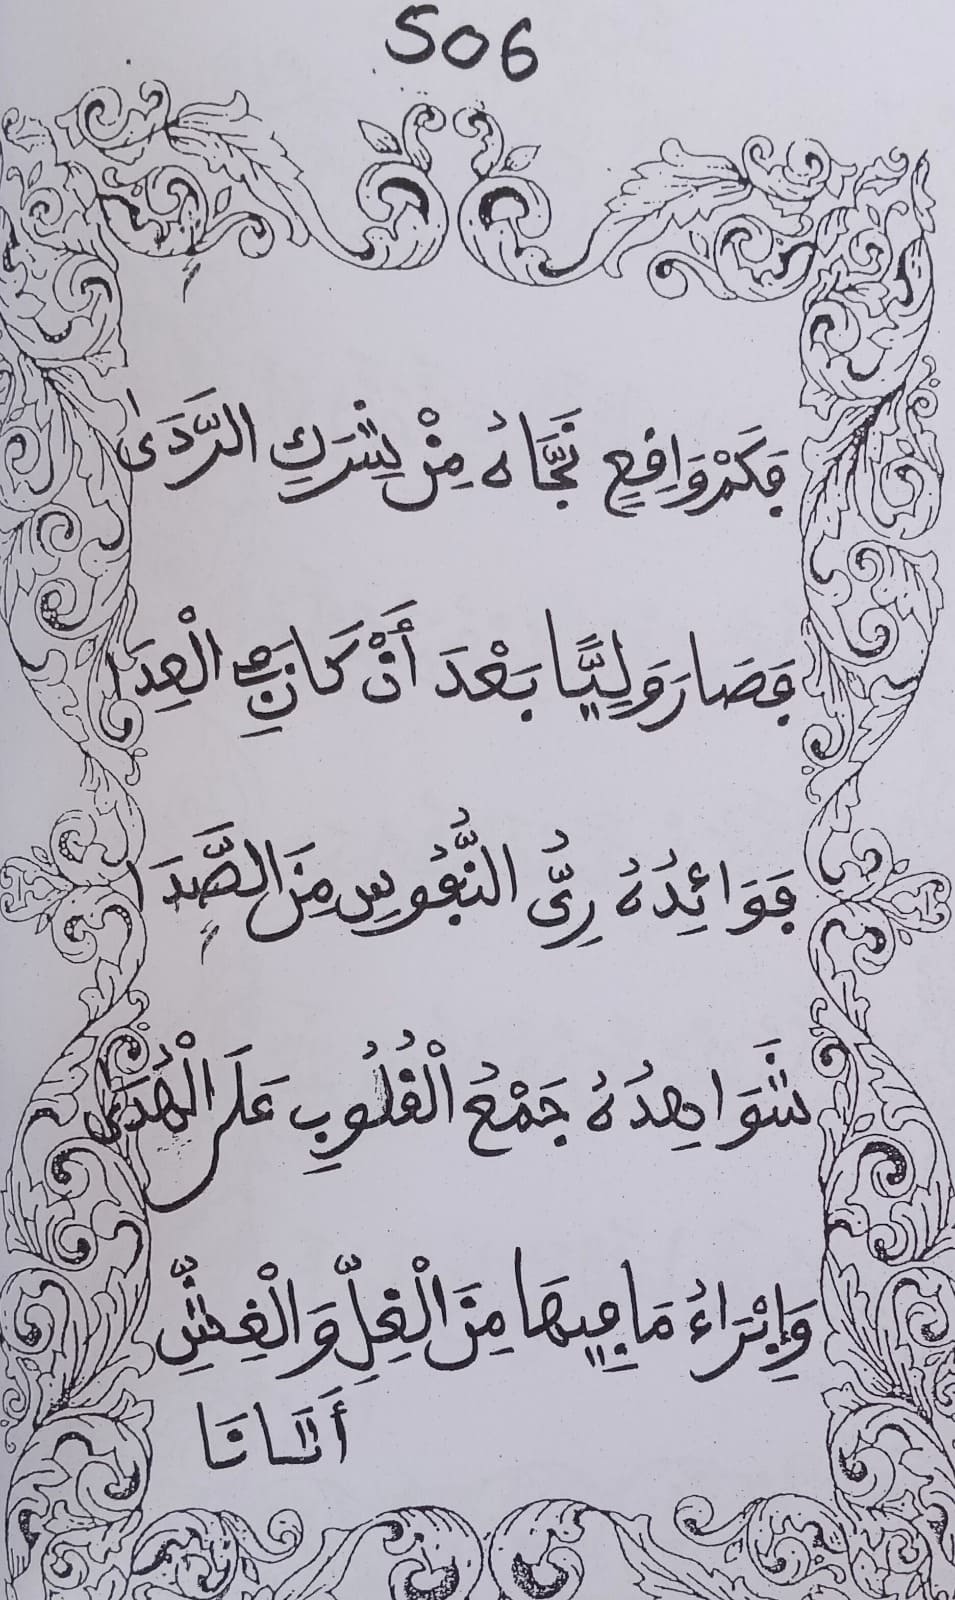 506
فَكَمْ وَاقِعٍ نَجَّاهُ مِنْ شَرَكِ الرَّدَى
فَصَارَ وَلِيًّا بَعْدَ أَنْ كَانَ فِي الْعِدَا
فَوَائِدُهُ رِيُّ النُّفُوسِ مِنَ الصَّدَا
شَوَاهِدُهُ جَمْعُ الْقُلُوبِ عَلَى الْهُدَى
وَإِبْرَاءُ مَا فِيهَا مِنَ الْغِلِّ وَالْغِشِّ
أَتَانَا